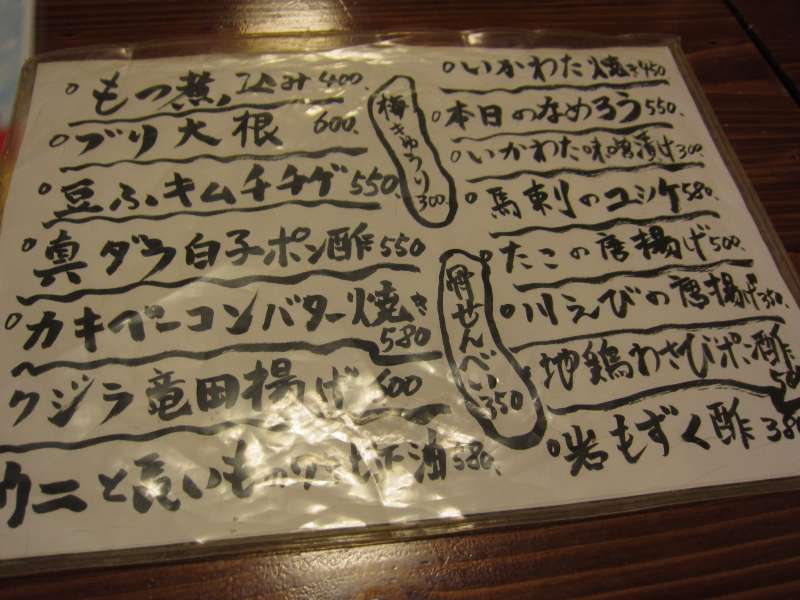 もつ煮込み 400.
ブリ大根 600.
豆ふキムチチゲ 550.
真ダラ白子ポン酢 550
カキベーコンバター焼き 580
クジラ竜田揚げ 600
ウニと長いもの 油 580.
梅きゅうり 300.
骨せんべい 350
いかわた焼き 450
本日のなめろう 550.
いかわた味噌漬け 300.
馬刺のユッケ 580.
たこの唐揚げ 500.
川えびの唐揚げ 350.
地鶏わさびポン酢
岩もずく酢 380